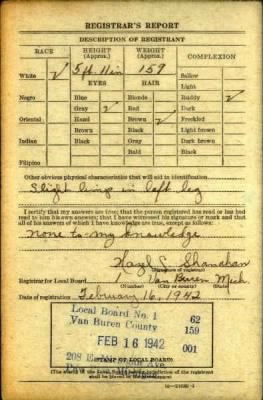 REGISTRAR'S REPORT
DESCRIPTION OF REGISTRANT
RACE HEIGHT (Approx.) WEIGHT (Approx.) COMPLEXION
White ✓ 5 ft 11 in 159 Sallow
EYES HAIR Light
Negro Blue Blonde Ruddy ✓
Gray ✓ Red Dark
Oriental Hazel Brown ✓ Freckled
Brown Black Light brown
Indian Black Gray Dark brown
Bald Black
Filipino
Other obvious physical characteristics that will aid in identification
Slight limp in left leg
I certify that my answers are true; that the person registered has read or has had
read to him his own answers; that I have witnessed his signature or mark and that
all of his answers of which I have knowledge are true, except as follows:
None to my knowledge
Hazel C Shanahan
(Signature of registrar)
Registrar for Local Board 1 Van Buren Mich.
(Number) (City or county) (State)
Date of registration February 16, 1942
Local Board No. 1 62
Van Buren County 159
FEB 16 1942 001
208
STAMP OF LOCAL BOARD
(The stamp of the Local Board having jurisdiction of the registrant
shall be placed in the above space)